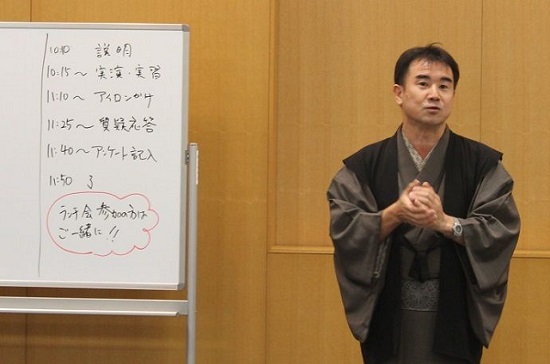 10:10 説明
10:15〜 実演・実習
11:10〜 アイロンがけ
11:25〜 質疑応答
11:40〜 アンケート記入
11:50 了
ランチ会参加の方は
ご一緒に!!